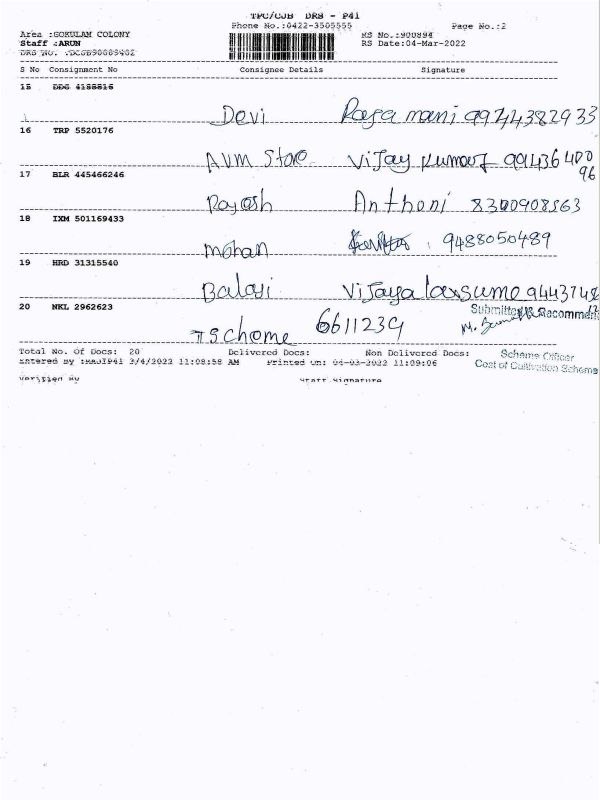 TPC/CJB DRS - P41
Phone No.:0422-3505555 Page No.:2
Area :GOKULAM COLONY RS No.:900894
Staff :ARUN RS Date:04-Mar-2022
DRS No.
S No Consignment No Consignee Details Signature
15 DDG 4188816
Devi Raja mani
16 TRP 5520176
AVM Store Vijay Kumar
96
17 BLR 445466246
Rajesh Anthoni 8300908563
18 IXM 501169433
mohan 9488050489
19 HRD 31315540
Balaji Vijaya
20 NKL 2962623 Submitted & Recommen
TSchome 6611239
Total No. Of Docs: 20 Delivered Docs: Non Delivered Docs: Scheme Officer
Entered By 3/4/2022 11:08:58 AM Printed On: 04-03-2022 11:09:06 Cost of Cultivation Scheme
Verified By Staff Signature